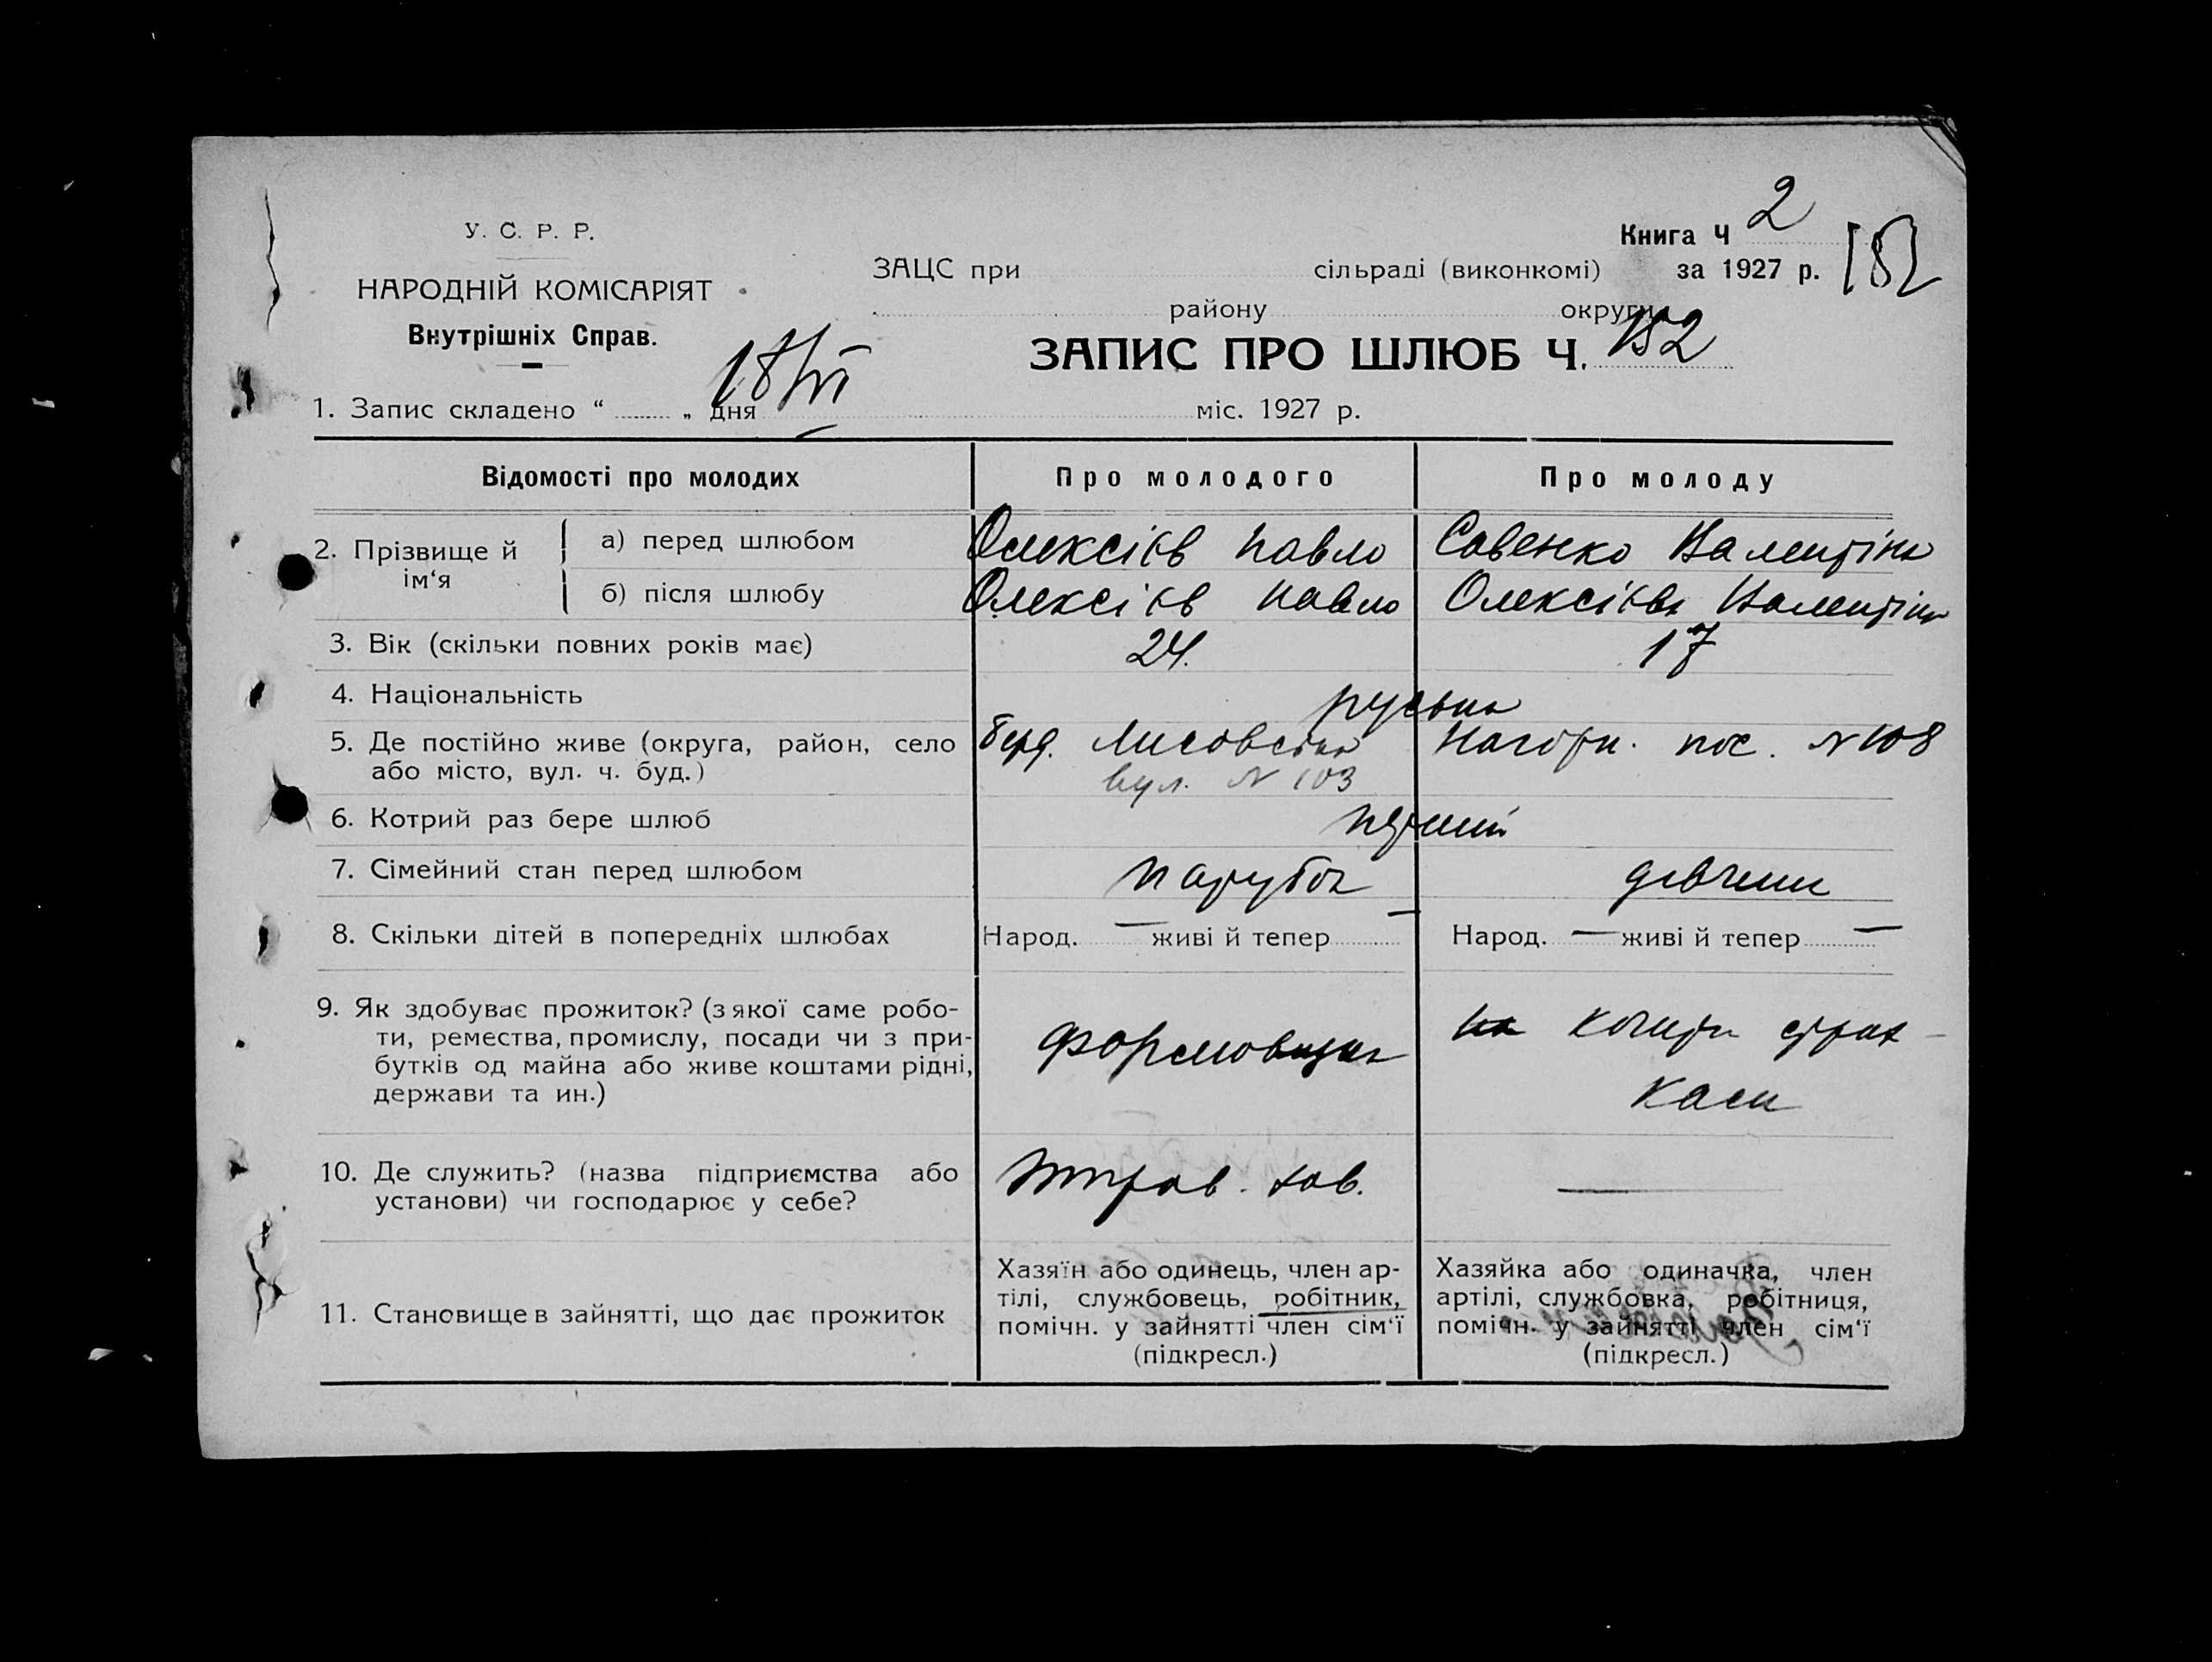 У. С. Р. Р.
НАРОДНІЙ КОМІСАРІЯТ
Внутрішніх Справ.
Книга Ч 2
ЗАЦС при сільраді (виконкомі) за 1927 р. 152
району округи
ЗАПИС ПРО ШЛЮБ Ч. 152
1. Запис складено “ „ дня 18/VI міс. 1927 р.
Відомості про молодих Про молодого Про молоду
2. Прізвище й ім‘я
а) перед шлюбом Олексієв Павло Савенко Валентіна
б) після шлюбу Олексієв Павло Олексієва Валентіна
3. Вік (скільки повних років має) 24. 17
4. Національність руська
5. Де постійно живе (округа, район, село Берд. Лисовська Нагорн. пос. № 108
або місто, вул. ч. буд.) вул. № 103
6. Котрий раз бере шлюб перший
7. Сімейний стан перед шлюбом парубок дівчина
8. Скільки дітей в попередніх шлюбах Народ. — живі й тепер — Народ. — живі й тепер —
9. Як здобуває прожиток? (з якої саме робо-
ти, ремества, промислу, посади чи з при-
бутків од майна або живе коштами рідні,
держави та ин.)
формовщик
кошти страх
каси
10. Де служить? (назва підприємства або
установи) чи господарює у себе?
зав. —
11. Становище в зайнятті, що дає прожиток
Хазяїн або одинець, член ар-
тілі, службовець, робітник,
помічн. у зайнятті член сім‘ї
(підкресл.)
Хазяйка або одиначка, член
артілі, службовка, робітниця,
помічн. у зайнятті член сім‘ї
(підкресл.)